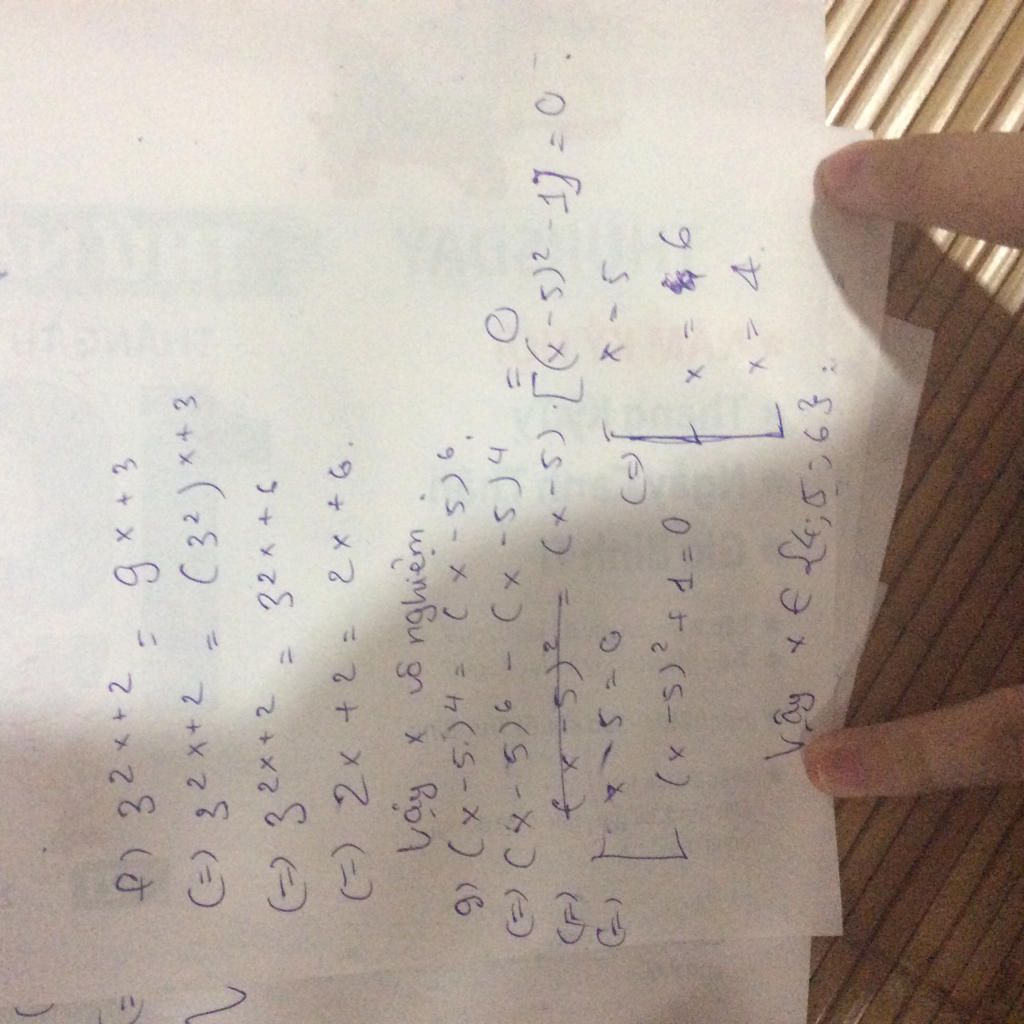 f) 3^2x+2 = 9^x+3
(=) 3^2x+2 = (3^2)^x+3
(=) 3^2x+2 = 3^2x+6
(=) 2x+2 = 2x+6.
Vậy x vô nghiệm.
g) (x-5)^4 = (x-5)^6.
(=) (x-5)^6 - (x-5)^4 = 0
(=) (x-5)^2 = (x-5).[(x-5)^2-1] = 0
(=) [ x-5=0 (=) [ x=5
(x-5)^2+1=0 x=6
x=4.
Vậy x ∈ {4;5;6}.
THURSDAY
THÁNG TH